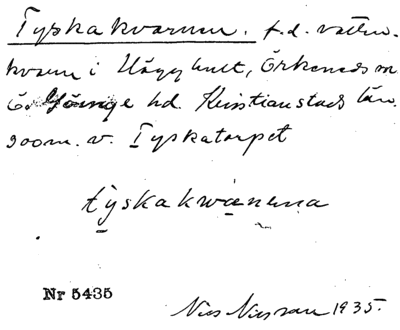 Tyskakvarnen. f.d. vatten-
kvarn i Hägghult, Örkeneds sn
Ö. Göinge hd. Kristianstads län.
300 m. v. Tyskatorpet
tyskakwanena
Nr 5435
Nils Nilsson 1935.